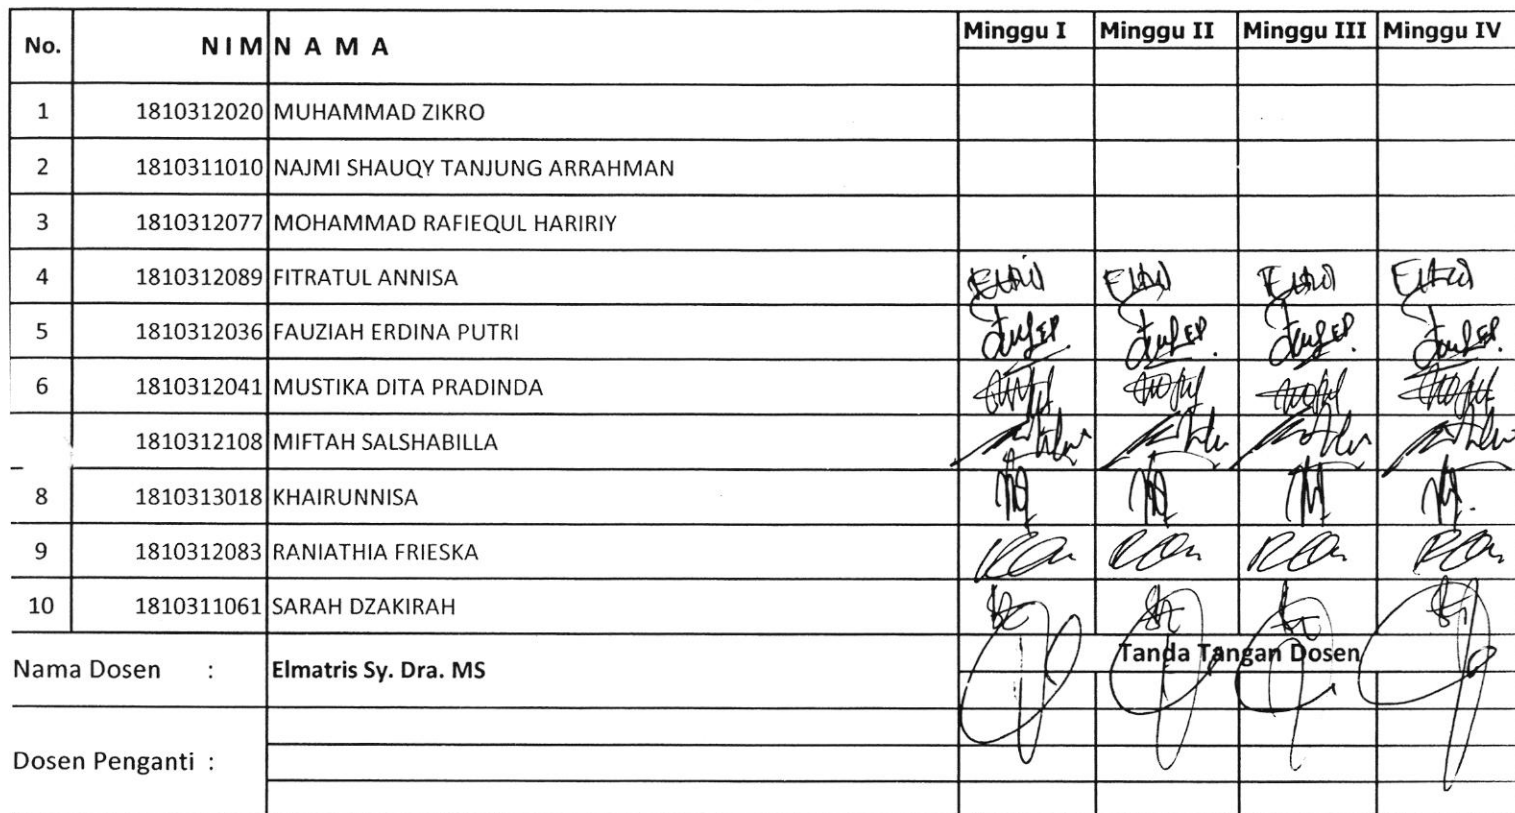 No. NIM N A M A Minggu I Minggu II Minggu III Minggu IV
1 1810312020 MUHAMMAD ZIKRO
2 1810311010 NAJMI SHAUQY TANJUNG ARRAHMAN
3 1810312077 MOHAMMAD RAFIEQUL HARIRIY
4 1810312089 FITRATUL ANNISA
5 1810312036 FAUZIAH ERDINA PUTRI
6 1810312041 MUSTIKA DITA PRADINDA
1810312108 MIFTAH SALSHABILLA
8 1810313018 KHAIRUNNISA
9 1810312083 RANIATHIA FRIESKA
10 1810311061 SARAH DZAKIRAH
Nama Dosen : Elmatris Sy. Dra. MS Tanda Tangan Dosen
Dosen Penganti :